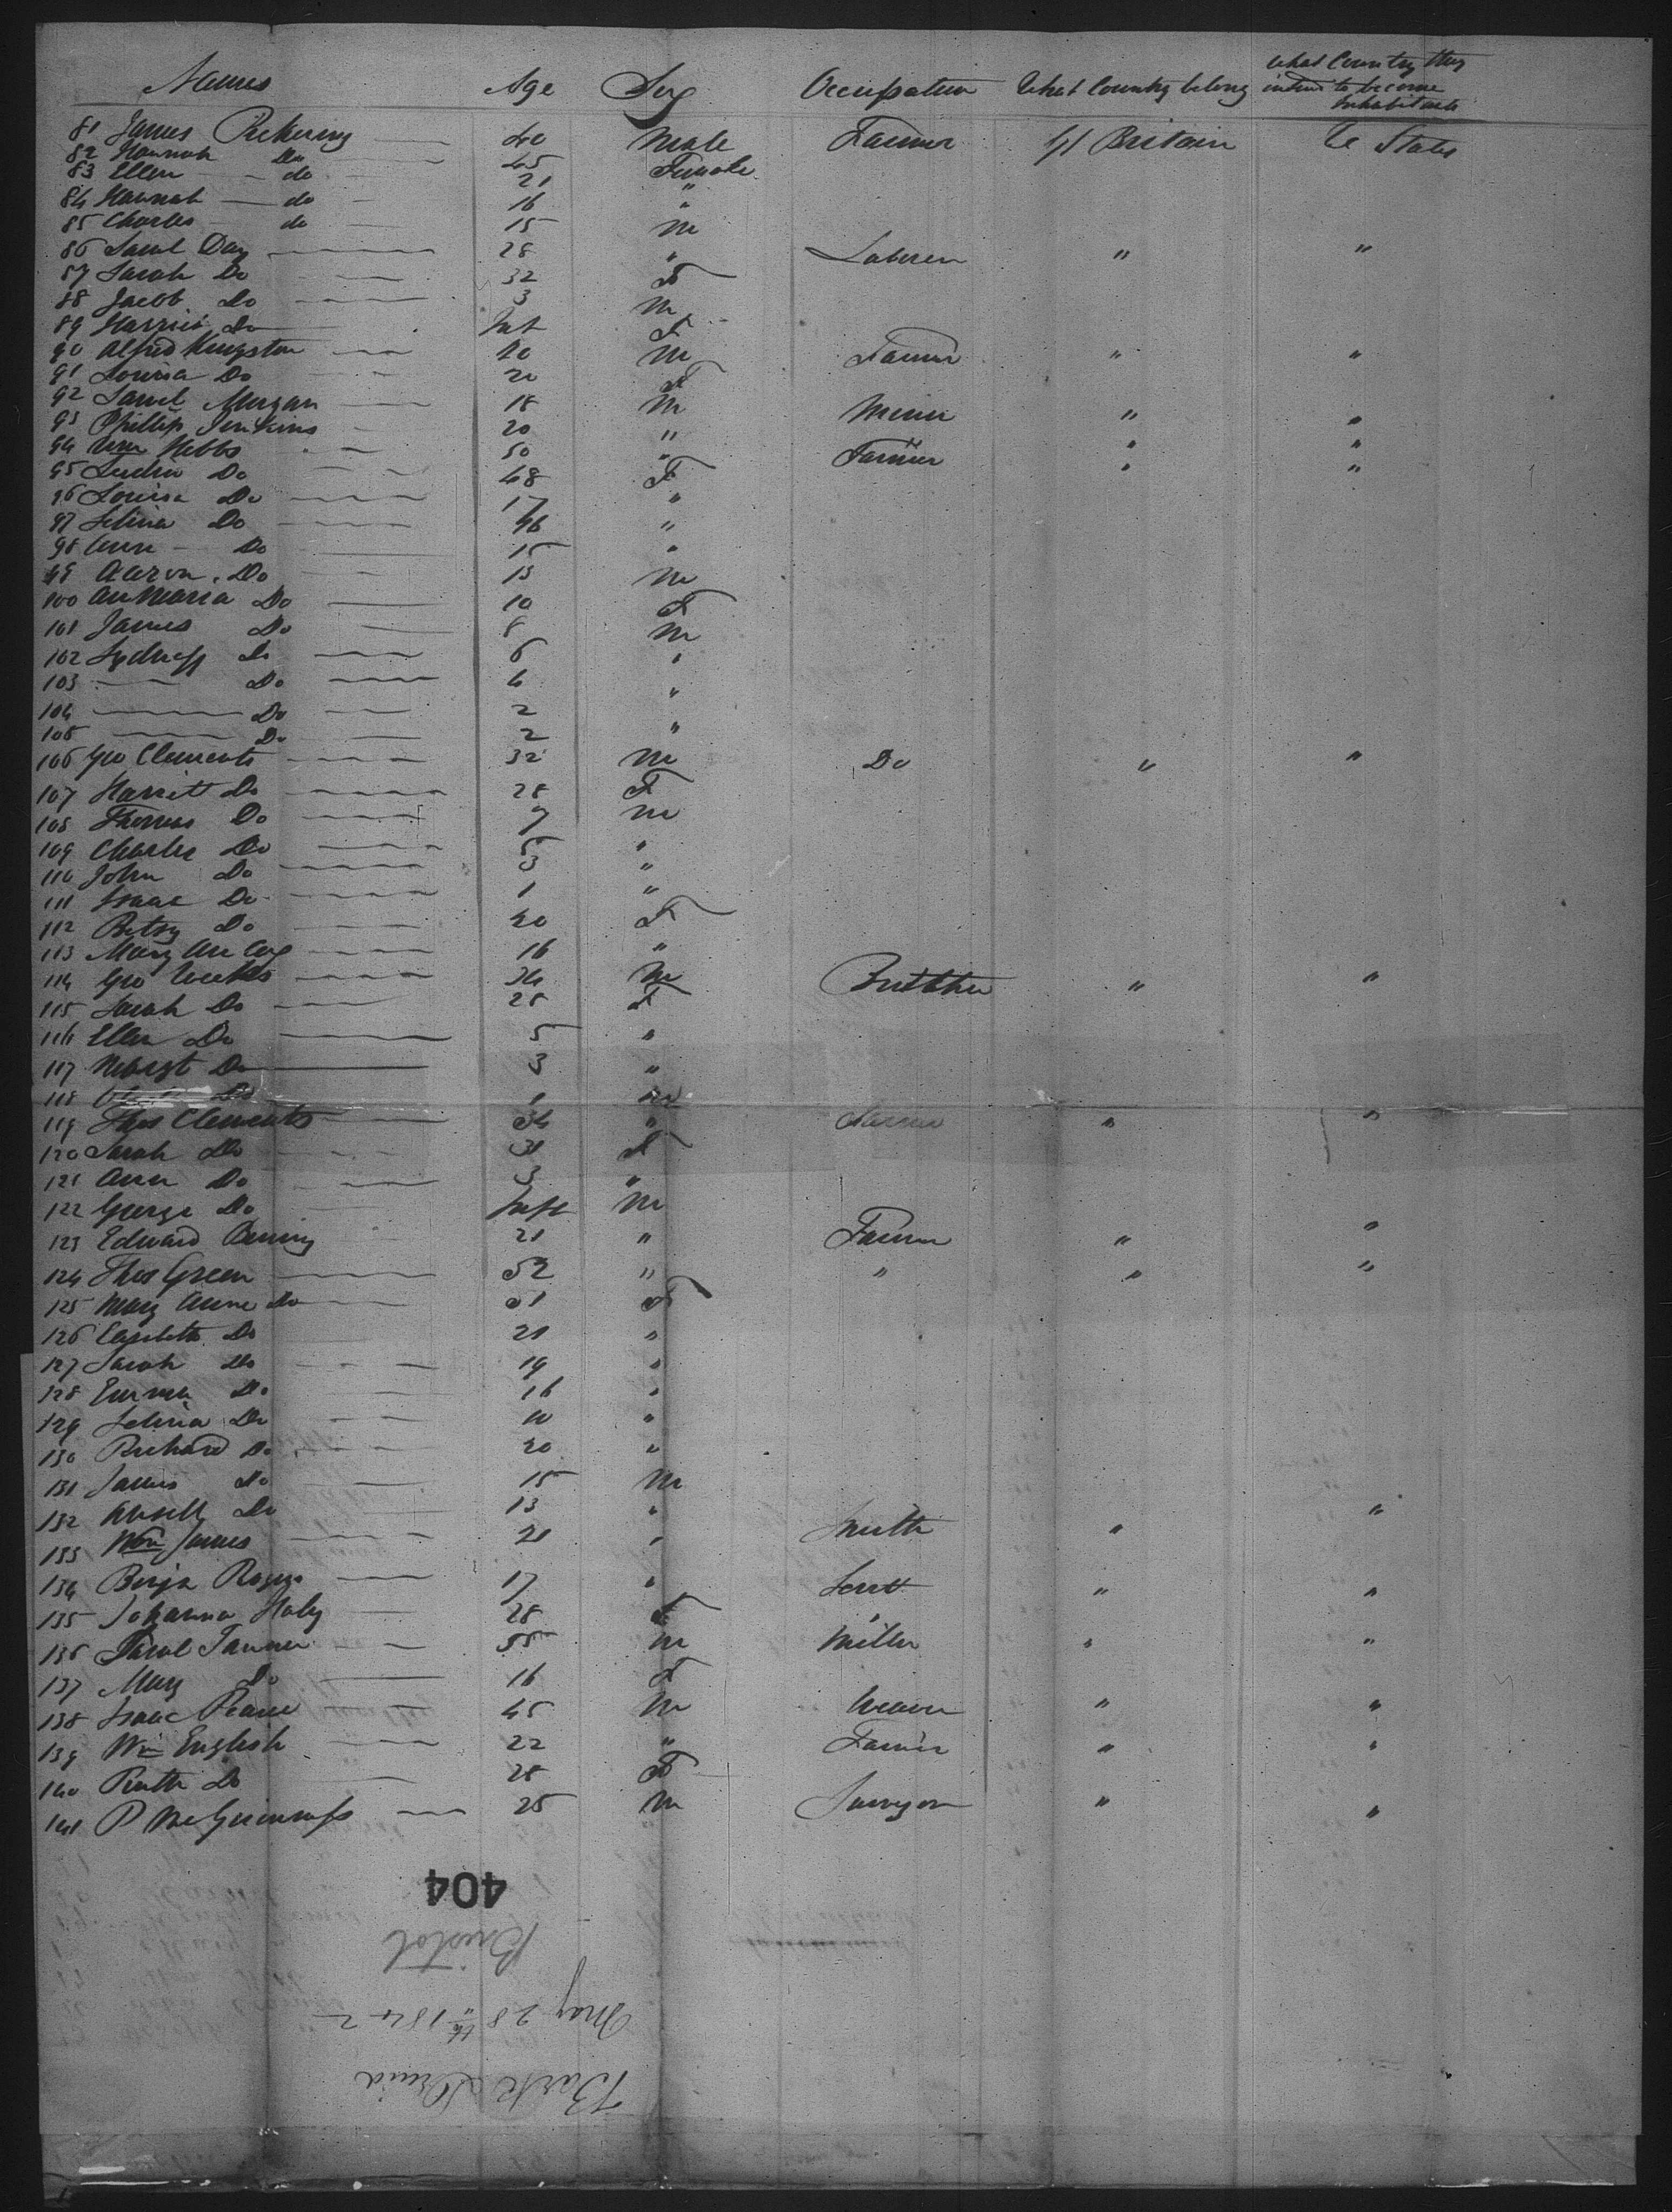 Names Age Sex Occupation What Country belong What Country they intend to become Inhabitants
81 James Pickering 40 Male Farmer Gt Britain U States
82 Hannah Do 45 Female
83 Ellen do 21 "
84 Hannah do 16 "
85 Charles do 15 M
86 Saml Day 28 " Laborer " "
87 Sarah Do 32 F
88 Jacob Do 3 M
89 Harriet Do Inft F
90 Alfred Kingston 20 M Farmer " "
91 Louisa Do 20 F
92 Samel Morgan 18 M Miner " "
93 Phillip Jenkins 20 " " " "
94 Wm Hebbs 50 " Farmer " "
95 Do 48 F " "
96 Louisa Do 17 "
97 Selina Do "
98 Ann Do 15 "
99 Aaron Do 13 M
100 AnMaria Do 10 F
101 James Do 8 M
102 Do 6 "
103 Do 4 "
104 Do 2 "
105 Do 2 "
106 Geo Clements 32 M Do " "
107 Harriett Do 28 F
108 Thomas Do 7 M
109 Charles Do 5 "
110 John Do 3 "
111 Isaac Do 1 "
112 Betsy Do 20 F
113 Mary Ann Cox 16 "
114 Geo Weeks 34 M Butcher " "
115 Sarah Do 28 F
116 Ellen Do 5 "
117 Do 3 "
118 Do 1 M
119 Thos Clements 34 " Farmer " "
120 Sarah Do 31 F
121 Ann Do 3 "
122 George Do Inft M
123 Edward 21 " Farmer " "
124 Thos Green 52 " " " "
125 Mary Anne Do 51 F
126 Do 21 "
127 Sarah Do 19 "
128 Emma Do 16 "
129 Selina Do 10 "
130 Richard Do 20 "
131 James Do 15 M
132 Do 13 "
133 Wm James 21 " Smith " "
134 Benjn Rogers 17 " "  "
135 Johanna Haly 28 F "
136 Saml Tanner 55 M Miller " "
137 Mary Do 16 F
138 Isaac Pearce 45 M Weaver " "
139 Wm English 22 " Farmer " "
140 Ruth Do 28 F
141 P McGuinness 25 M Surgeon " "
404
Bristol
May 28th 1842
Bark Druid